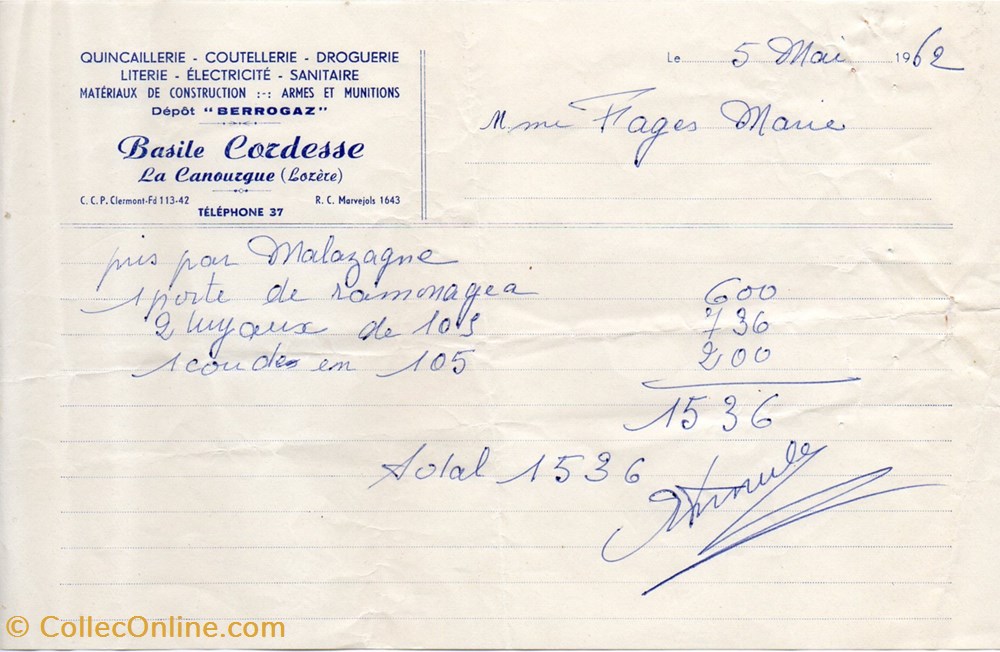 QUINCAILLERIE - COUTELLERIE - DROGUERIE
LITERIE - ÉLECTRICITÉ - SANITAIRE
MATÉRIAUX DE CONSTRUCTION :-: ARMES ET MUNITIONS
Dépôt "BERROGAZ"
Basile Cordesse
La Canourgue (Lozère)
C. C. P. Clermont-Fd 113-42 R. C. Marvejols 1643
TÉLÉPHONE 37
Le 5 Mai 1962
Mme Fages Marie
pris par Malazagne
1 porte de ramonage 600
2 tuyaux de 105 736
1 coude en 105 200
1536
Total 1536
© CollecOnline.com